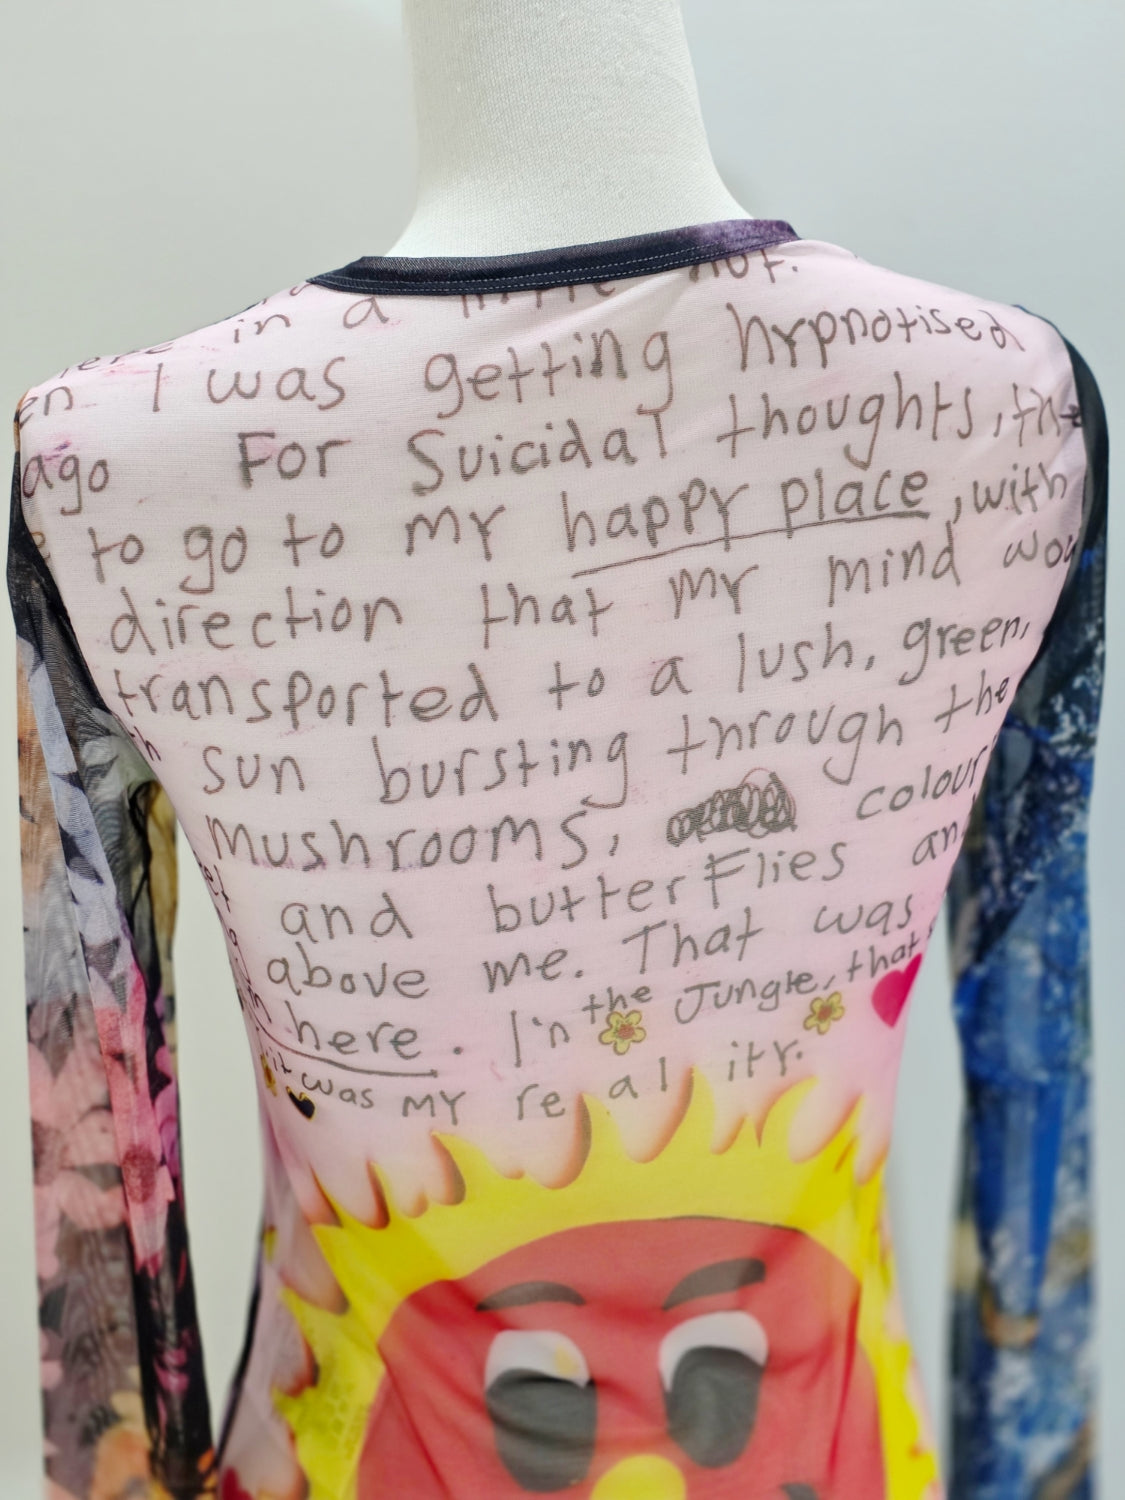 in a little nut.
en I was getting hypnotised
ago For Suicidal thoughts, the
to go to my happy place, with
direction that my mind wou
transported to a lush, green,
th sun bursting through the
mushrooms, colour
and butterflies an
above me. That was
here. I'n the Jungle, that s
it was my re al ity.